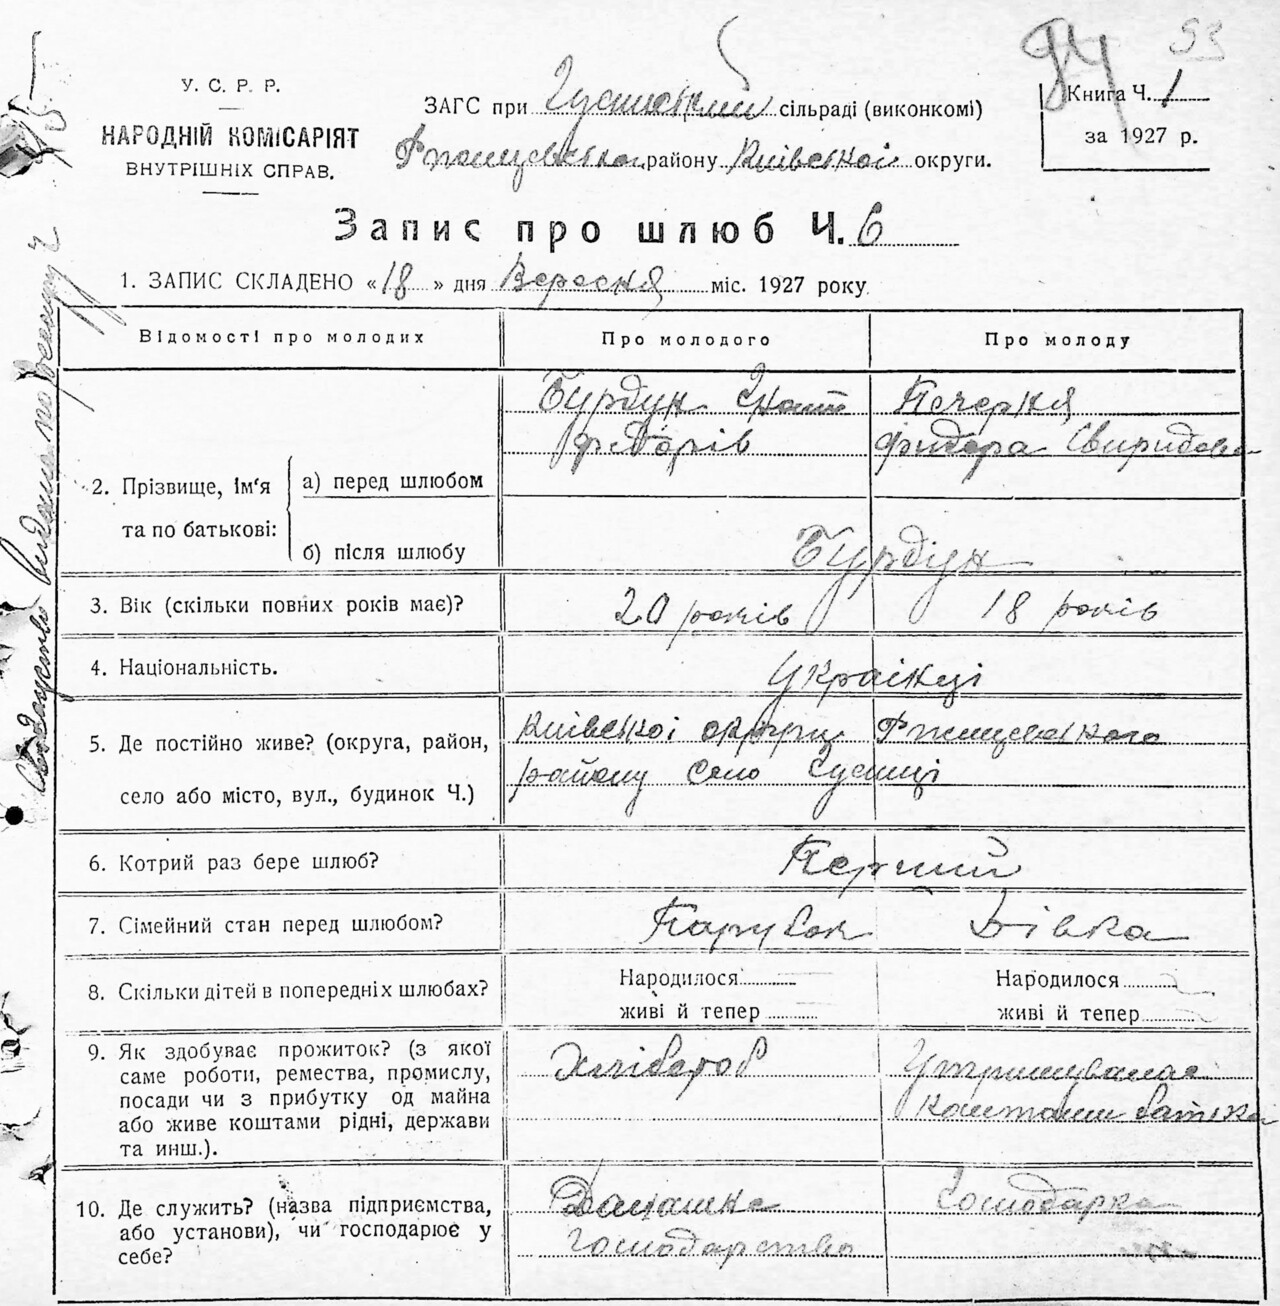 94 53
У. С. Р. Р.
НАРОДНІЙ КОМІСАРІЯТ
ВНУТРІШНІХ СПРАВ.
ЗАГС при сільраді (виконкомі)
району Київськоі округи.
Книга Ч. 1
за 1927 р.
Запис про шлюб Ч. 6
1. ЗАПИС СКЛАДЕНО «18» дня Вересня міс. 1927 року
Відомості про молодих Про молодого Про молоду
2. Прізвище, ім'я та по батькові:
а) перед шлюбом
Бурдун Гнат
Печерня
Свиридова
б) після шлюбу
Бурдун
3. Вік (скільки повних років має)? 20 років 18 років
4. Національність. Українці
5. Де постійно живе? (округа, район,
село або місто, вул., будинок Ч.)
Київськоі округи Ржищевського
району село
6. Котрий раз бере шлюб? Перший
7. Сімейний стан перед шлюбом? Парубок Дівка
8. Скільки дітей в попередніх шлюбах? Народилося Народилося
живі й тепер живі й тепер
9. Як здобуває прожиток? (з якої
саме роботи, ремества, промислу,
посади чи з прибутку од майна
або живе коштами рідні, держави
та инш.).
Хлібороб
коштами батька
10. Де служить? (назва підприємства,
або установи), чи господарює у
себе?
Домашнє
господарство
Господарка